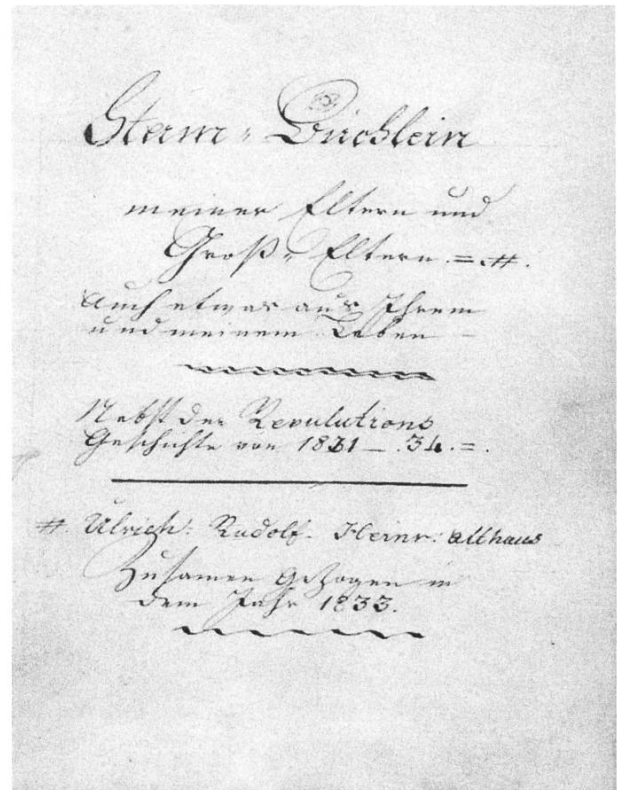 Stam-Büchlein
meiner Eltern und
Groß-Eltern.=.#.
Auch etwas aus Ihrem
und meinem Leben
Nebst der Revulutions
Geschichte von 1831 - .34.=.
#. Ulrich: Rudolf. Heinr: althaus
Zusamen Gezogen in
dem Jahr 1833.